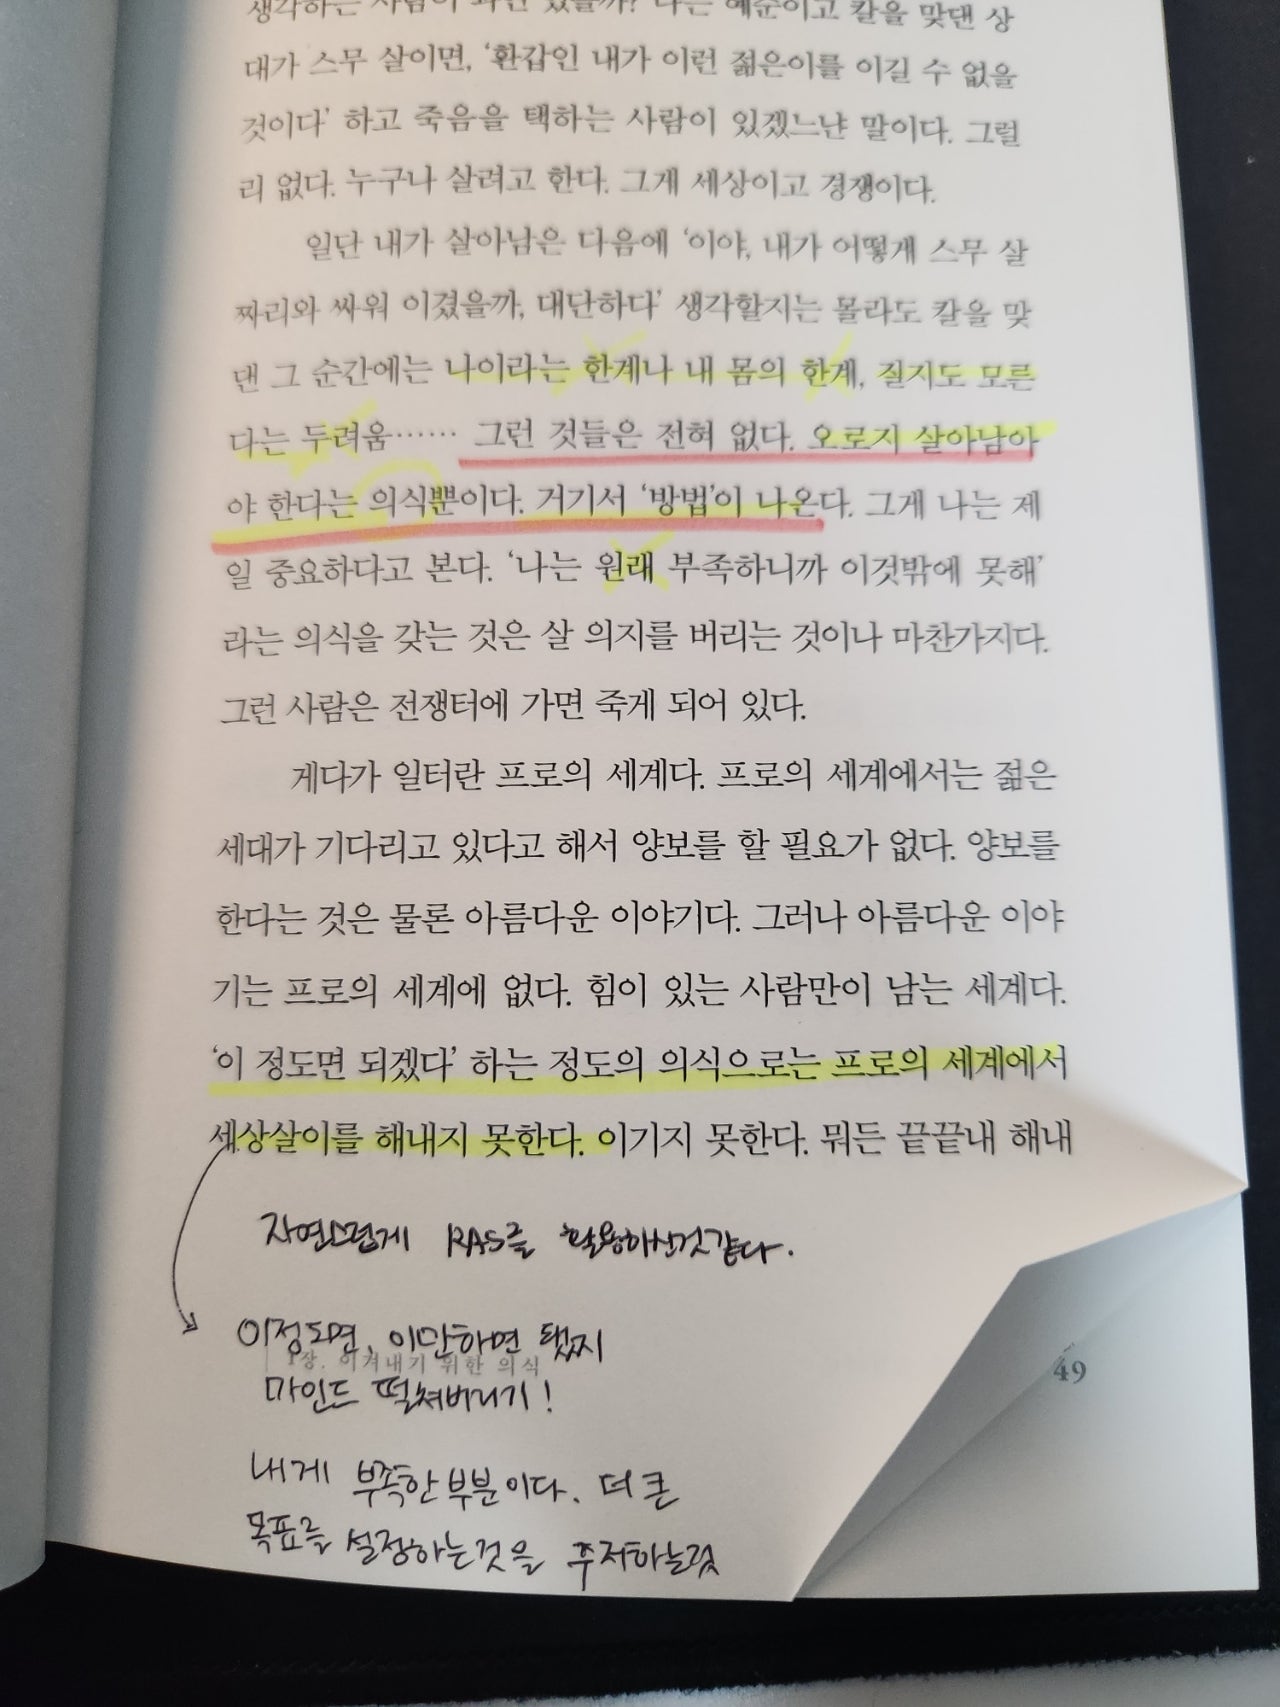 생각하는 사람이 과연 있을까? 나는 예순이고 칼을 맞댄 상
대가 스무 살이면, ‘환갑인 내가 이런 젊은이를 이길 수 없을
것이다’ 하고 죽음을 택하는 사람이 있겠느냔 말이다. 그럴
리 없다. 누구나 살려고 한다. 그게 세상이고 경쟁이다.
일단 내가 살아남은 다음에 ‘이야, 내가 어떻게 스무 살
짜리와 싸워 이겼을까, 대단하다’ 생각할지는 몰라도 칼을 맞
댄 그 순간에는 나이라는 한계나 내 몸의 한계, 질지도 모른
다는 두려움…… 그런 것들은 전혀 없다. 오로지 살아남아
야 한다는 의식뿐이다. 거기서 ‘방법’이 나온다. 그게 나는 제
일 중요하다고 본다. ‘나는 원래 부족하니까 이것밖에 못해’
라는 의식을 갖는 것은 살 의지를 버리는 것이나 마찬가지다.
그런 사람은 전쟁터에 가면 죽게 되어 있다.
게다가 일터란 프로의 세계다. 프로의 세계에서는 젊은
세대가 기다리고 있다고 해서 양보를 할 필요가 없다. 양보를
한다는 것은 물론 아름다운 이야기다. 그러나 아름다운 이야
기는 프로의 세계에 없다. 힘이 있는 사람만이 남는 세계다.
‘이 정도면 되겠다’ 하는 정도의 의식으로는 프로의 세계에서
세상살이를 해내지 못한다. 이기지 못한다. 뭐든 끝끝내 해내
자연스럽게 RAS를 활용하신것같다.
이정도면, 이만하면 됐지
1장. 이겨내기 위한 의식
49
마인드 떨쳐버리기!
내게 부족한 부분이다. 더 큰
목표를 설정하는것을 주저하는것